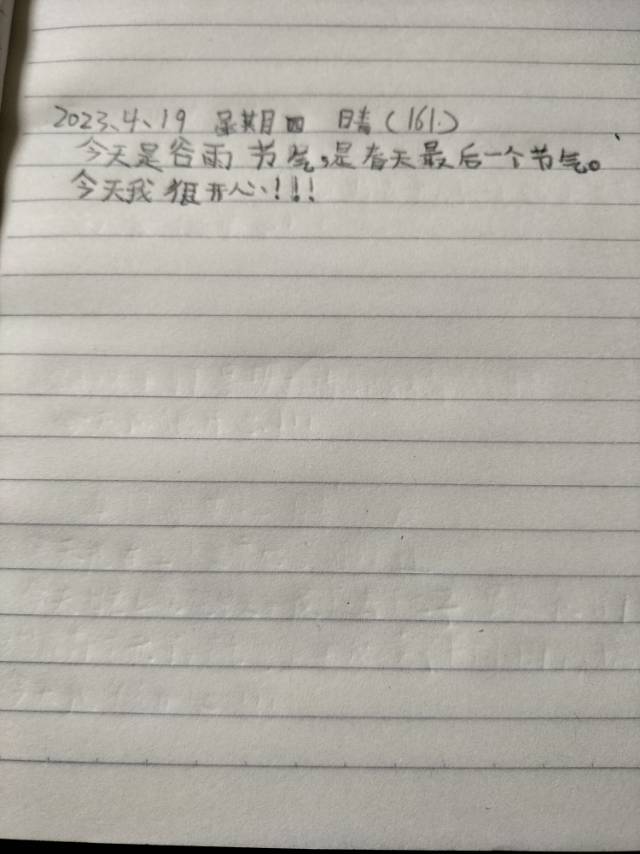 2023、4、19 星期四 晴(161.)
今天是谷雨节气，是春天最后一个节气。
今天我很开心!!!